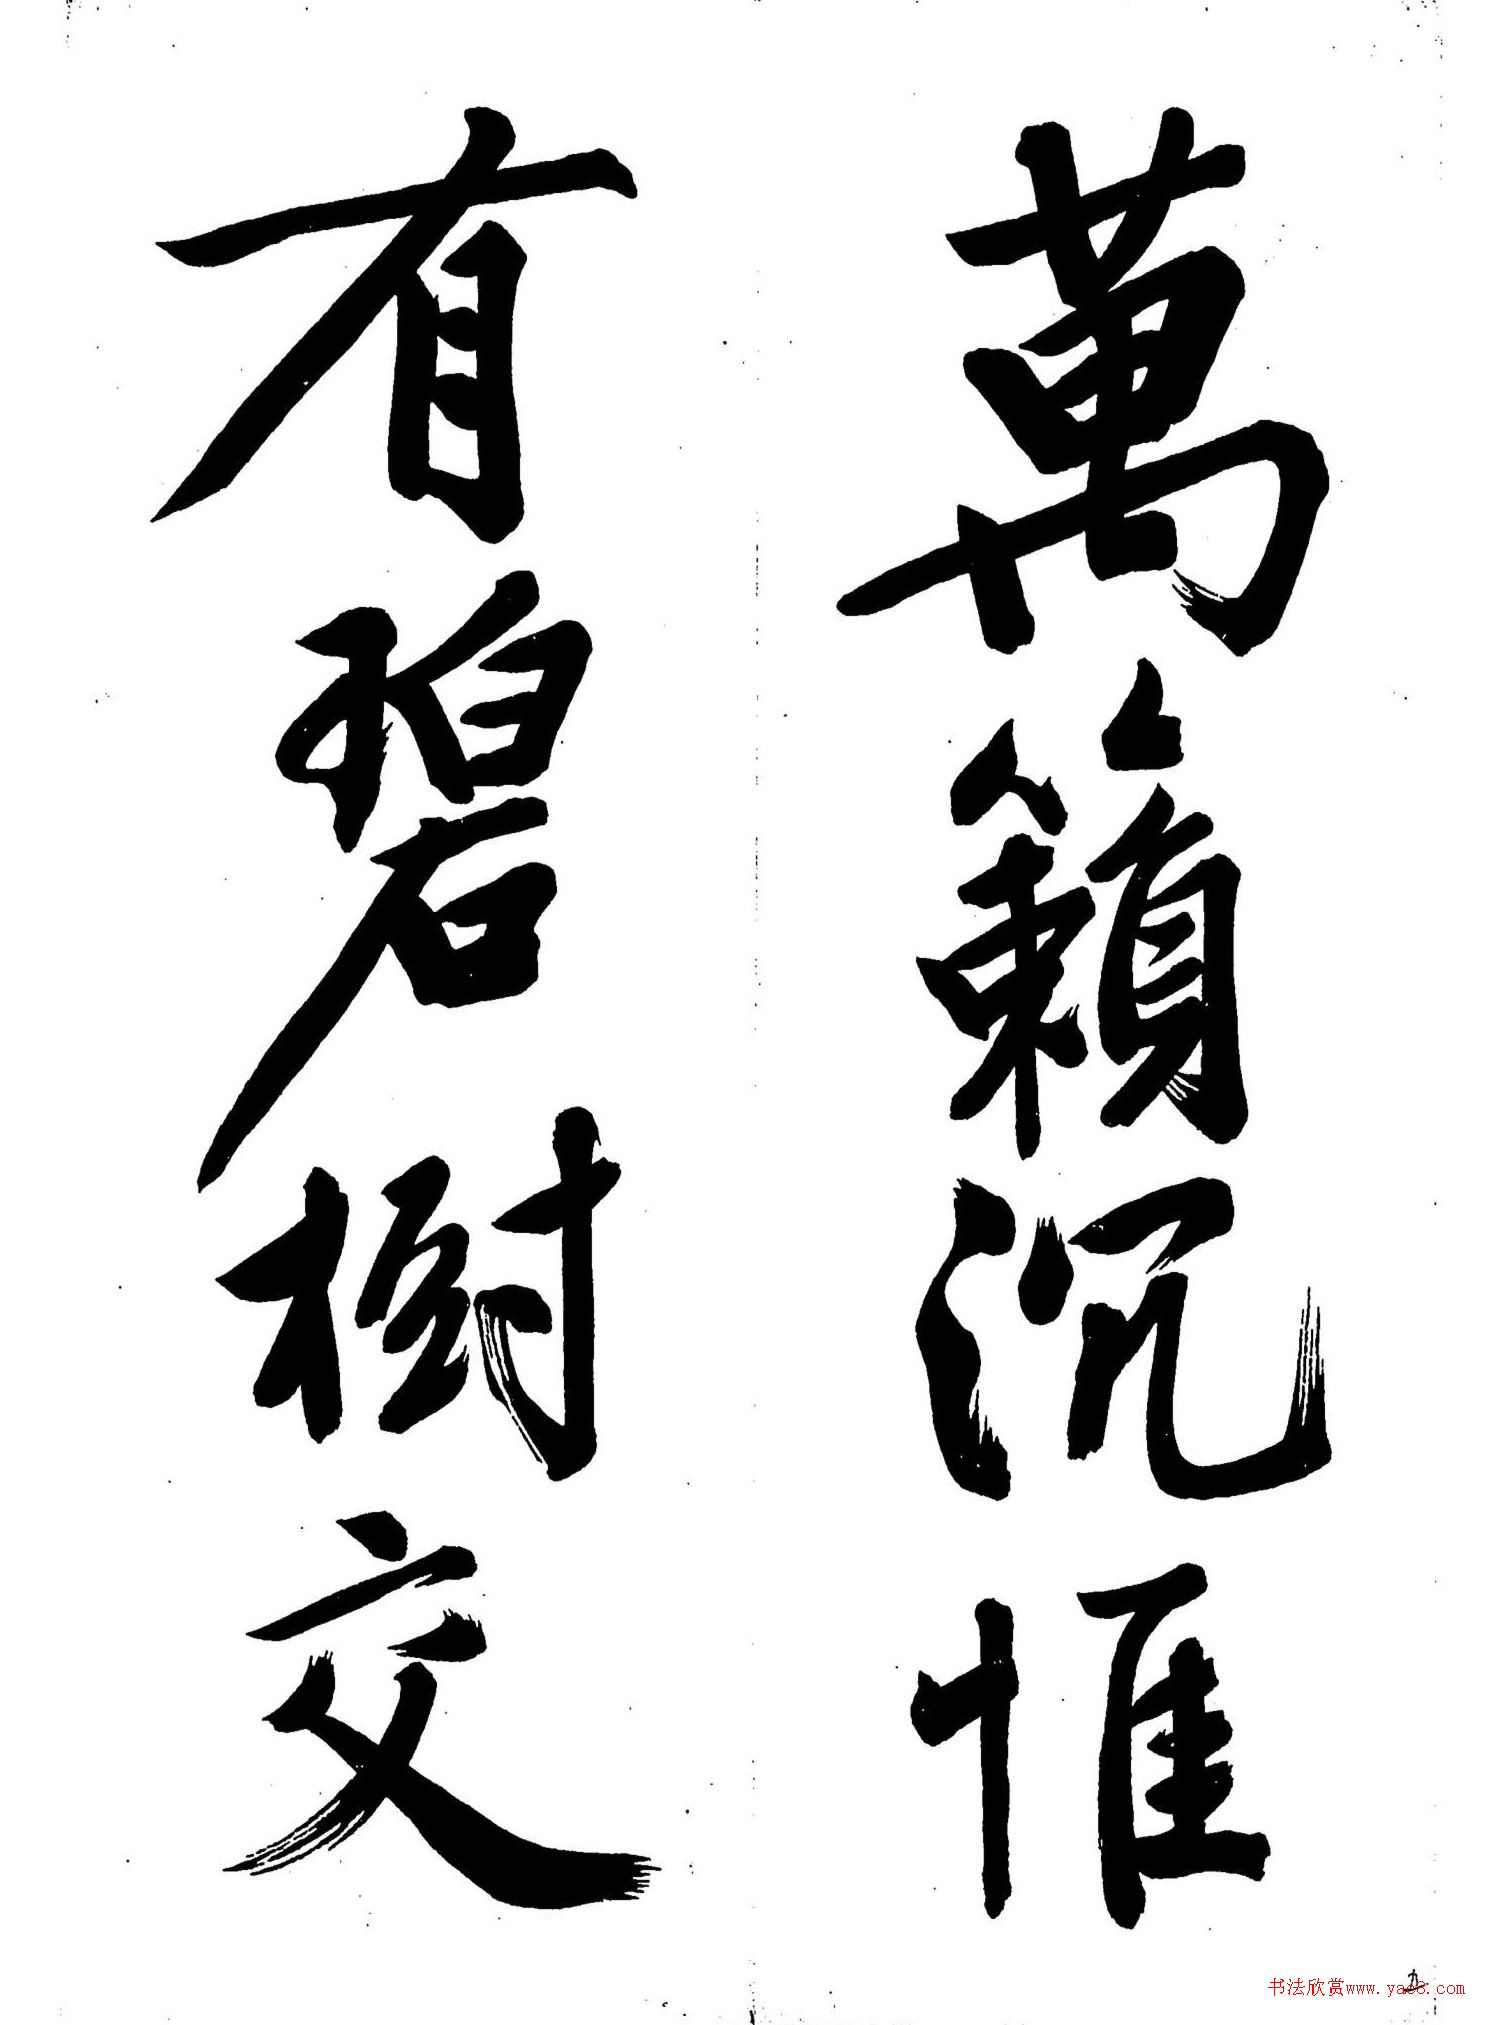 萬籟沉惟
有碧樹交
书法欣赏www.yac8.com